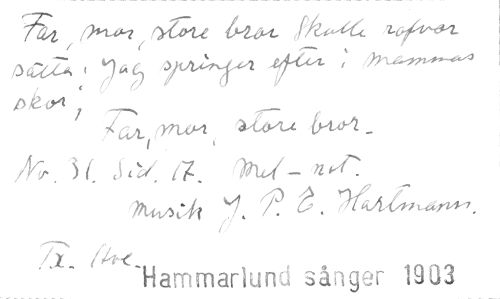 Far, mor, store bror Skulle räfvar
sätta; Jag springer efter i mammas
skor;
Far, mor, store bror.
No. 31. Sid. 17. Mel-not.
Musik J. P. E. Hartmann.
Tx. Hve-
Hammarlund sånger 1903